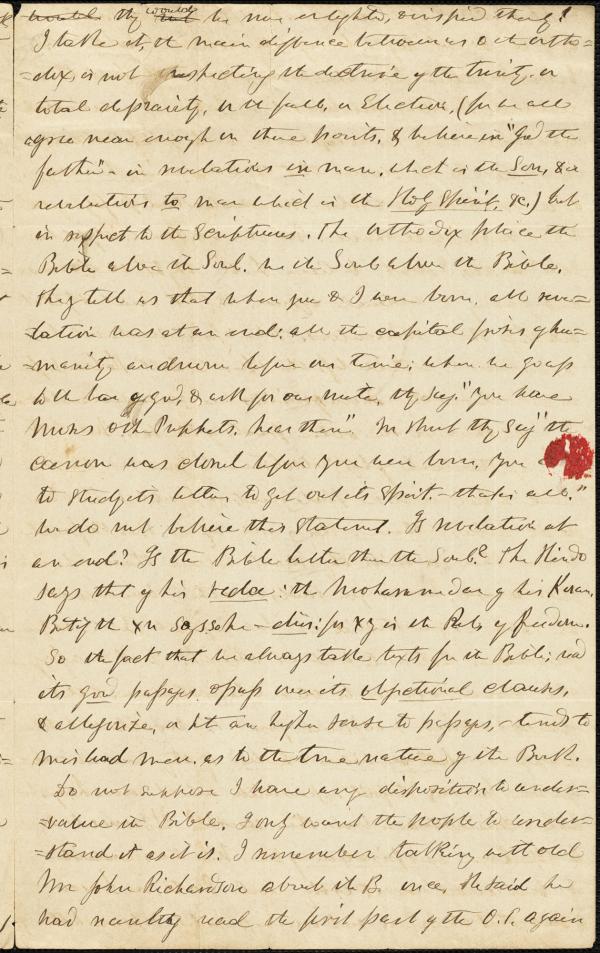 they would be more enlightd, & inspired thereby!
I take it, the main difference between us & the ortho=
=dox, is not respecting the doctrine of the trinity, or
total depravity, or the fall, or Election, (for we all
agree near enough on these points, & believe in "God the
father" – in revelations in man, which is the Son, & in
revelations to man which is the Holy Spirit, &c.) but
in respect to the Scriptures. The orthodox place the
Bible above the Soul. we the Soul above the Bible.
They tell us that when you & I were born, all reve=
=lation was at an end; all the capital prizes of hu=
=manity, andrawn before our time; when we go up
to the bar of god, & ask for our mite, they say, "You have
Moses & the Prophets, hear them". In short they say "the
cannon was closed before you were born, You
to study its letter, to get out its spirit – that is all."
we do not believe this statemt. Is revelation at
an end? Is the Bible better than the Soul? The Hindo
says that of his veda: the Mohammedan of his Koran.
But if the xn says so he – dies: for xy is the Rel. of freedom.
So the fact that we always take texts fr the Bible; read
its good passages & pass over its objectional clauses,
& allegorize, or let an higher sense to passages, – tends to
mislead men, as to the true nature of the Book.
Do not suppose I have any disposition to under=
=value the Bible. I only want the people to under=
=stand it as it is. I remember talking with old
Mr John Richardson about the B. once, He said he
had recently read the first part of the O.T. again